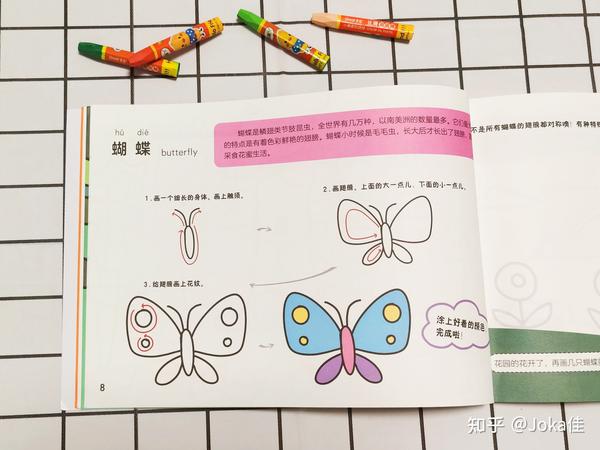 hú dié
蝴 蝶 butterfly
蝴蝶是鳞翅类节肢昆虫，全世界有几万种，以南美洲的数量最多。它们最
的特点是有着色彩鲜艳的翅膀。蝴蝶小时候是毛毛虫，长大后才长出了翅膀，
采食花蜜生活。
不是所有蝴蝶的翅膀都对称噢！有种特
1.画一个细长的身体，画上触须。
2.画翅膀，上面的大一点儿，下面的小一点儿。
3.给翅膀画上花纹。
涂上好看的颜色
完成啦！
花园的花开了，再画几只蝴蝶
8
知乎 @Joka佳